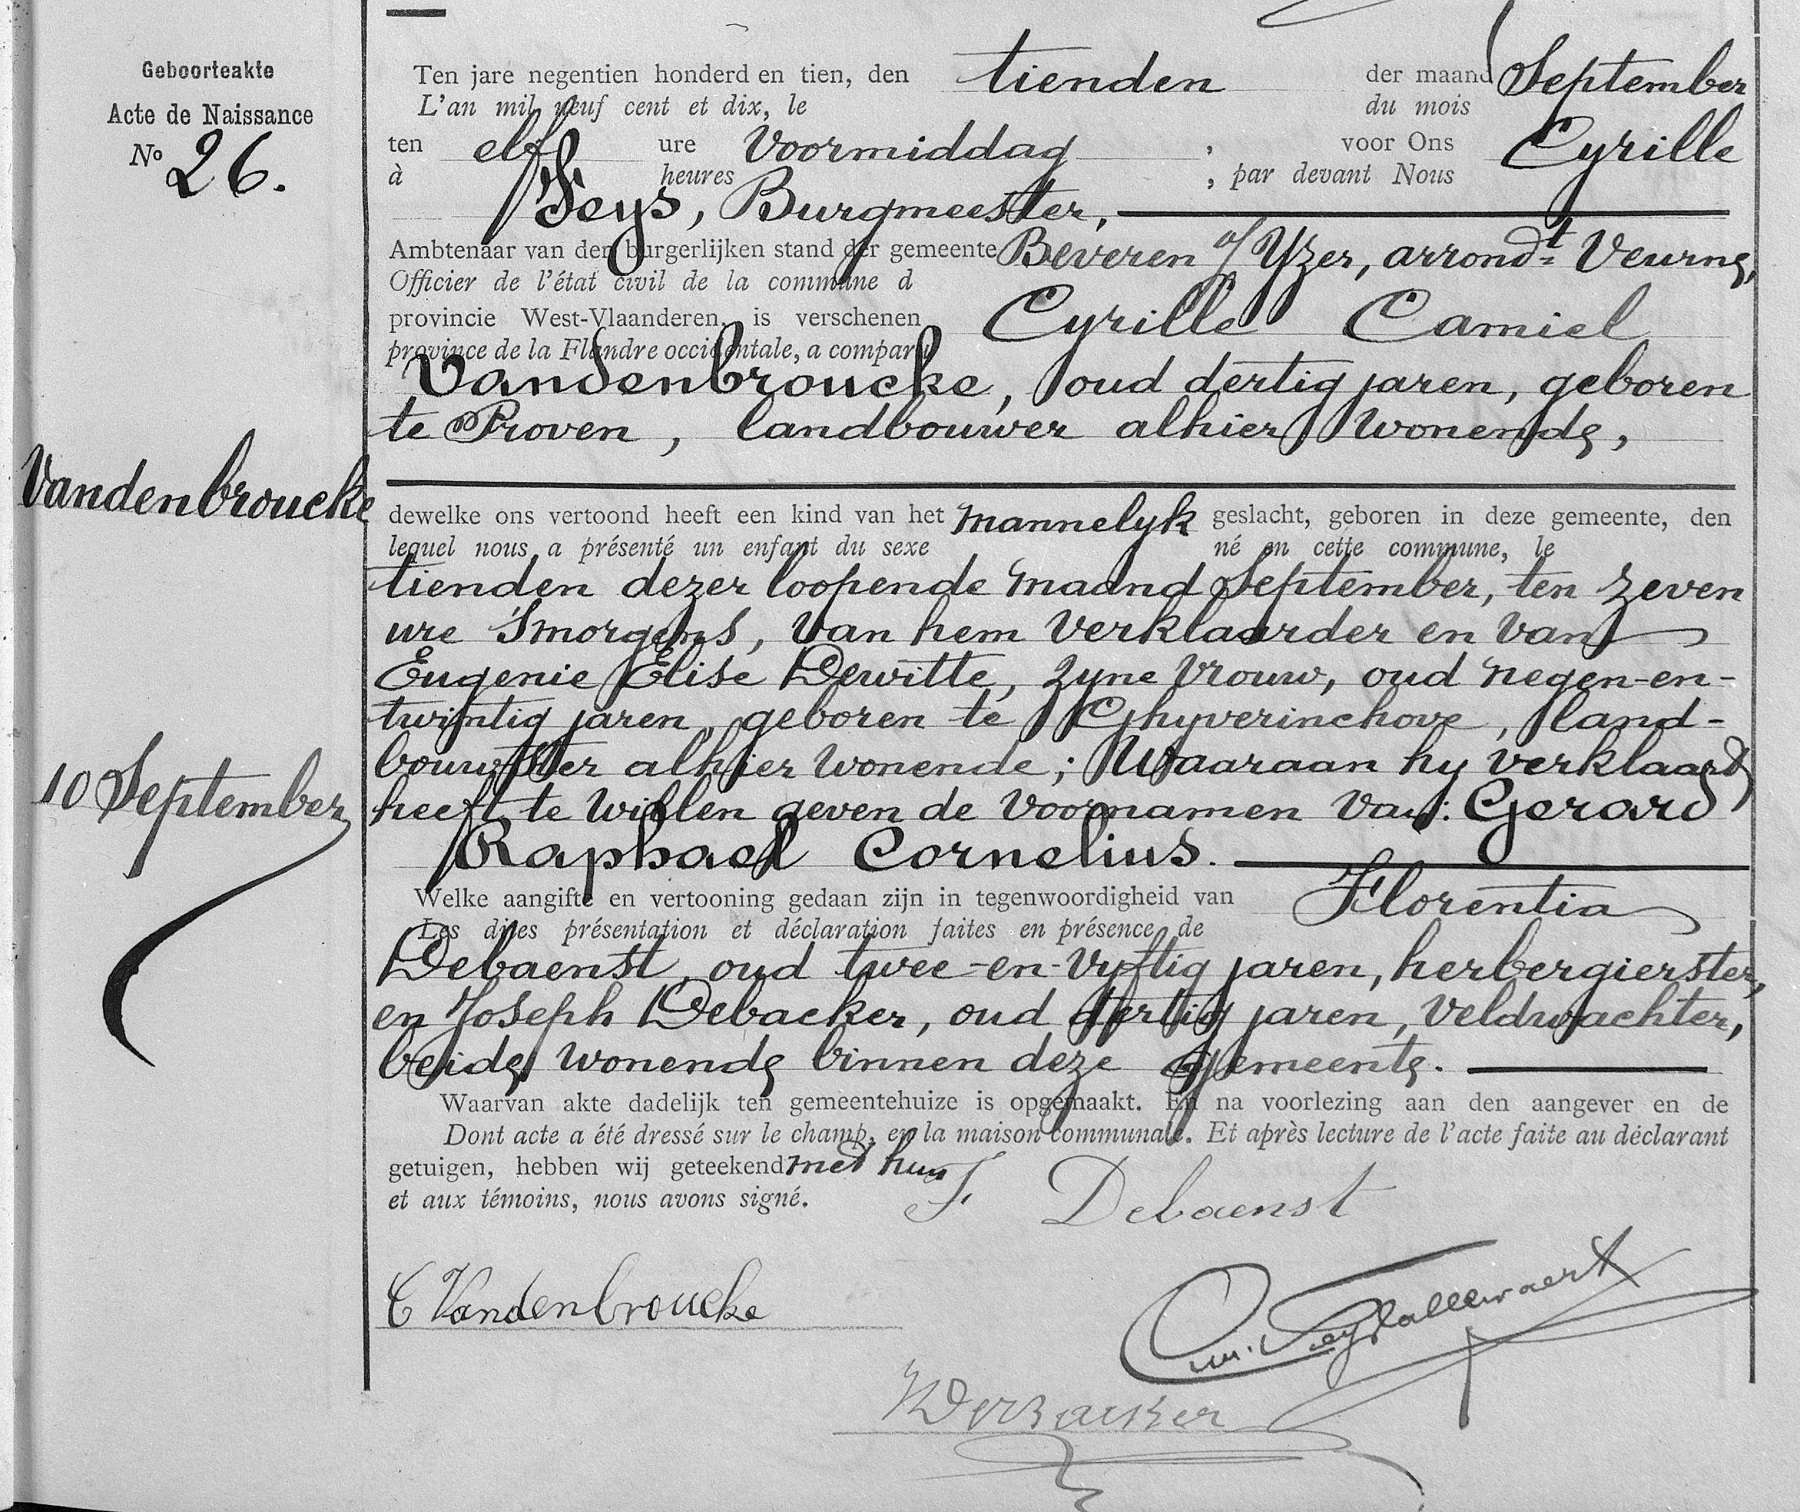 Geboorteakte
Acte de Naissance
No 26.
Vandenbroucke
10 September
Ten jare negentien honderd en tien, den tienden der maand September
L'an mil neuf cent et dix, le du mois
ten elf ure voormiddag, voor Ons Cyrille
à heures , par devant Nous
Seys, Burgmeester,
Ambtenaar van den burgerlijken stand der gemeente Beveren o/ Yzer, arrondt Veurne,
Officier de l'état civil de la commune d
provincie West-Vlaanderen, is verschenen Cyrille Camiel
province de la Flandre occidentale, a comparu
Vandenbroucke, oud dertig jaren, geboren
te Proven, landbouwer alhier wonende,
dewelke ons vertoond heeft een kind van het mannelyk geslacht, geboren in deze gemeente, den
lequel nous a présenté un enfant du sexe né en cette commune, le
tienden dezer loopende maand September, ten zeven
ure 's morgens, van hem verklaarder en van
Eugenie Elise Dewitte, zyne vrouw, oud negen-en-
twintig jaren, geboren te Ghyverinchove, land-
bouwster alhier wonende; Waaraan hy verklaard
heeft te willen geven de voornamen van: Gerard
Raphaël Cornelius.
Welke aangifte en vertooning gedaan zijn in tegenwoordigheid van Florentia
Les dites présentation et déclaration faites en présence de
Debaenst, oud twee-en-vyftig jaren, herbergierster,
en Joseph Debacker, oud dertig jaren, veldwachter,
beide wonende binnen deze gemeente.
Waarvan akte dadelijk ten gemeentehuize is opgemaakt. En na voorlezing aan den aangever en de
Dont acte a été dressé sur le champ, en la maison communale. Et après lecture de l'acte faite au déclarant
getuigen, hebben wij geteekend met hun
et aux témoins, nous avons signé.
F. Debaenst
C Vandenbroucke